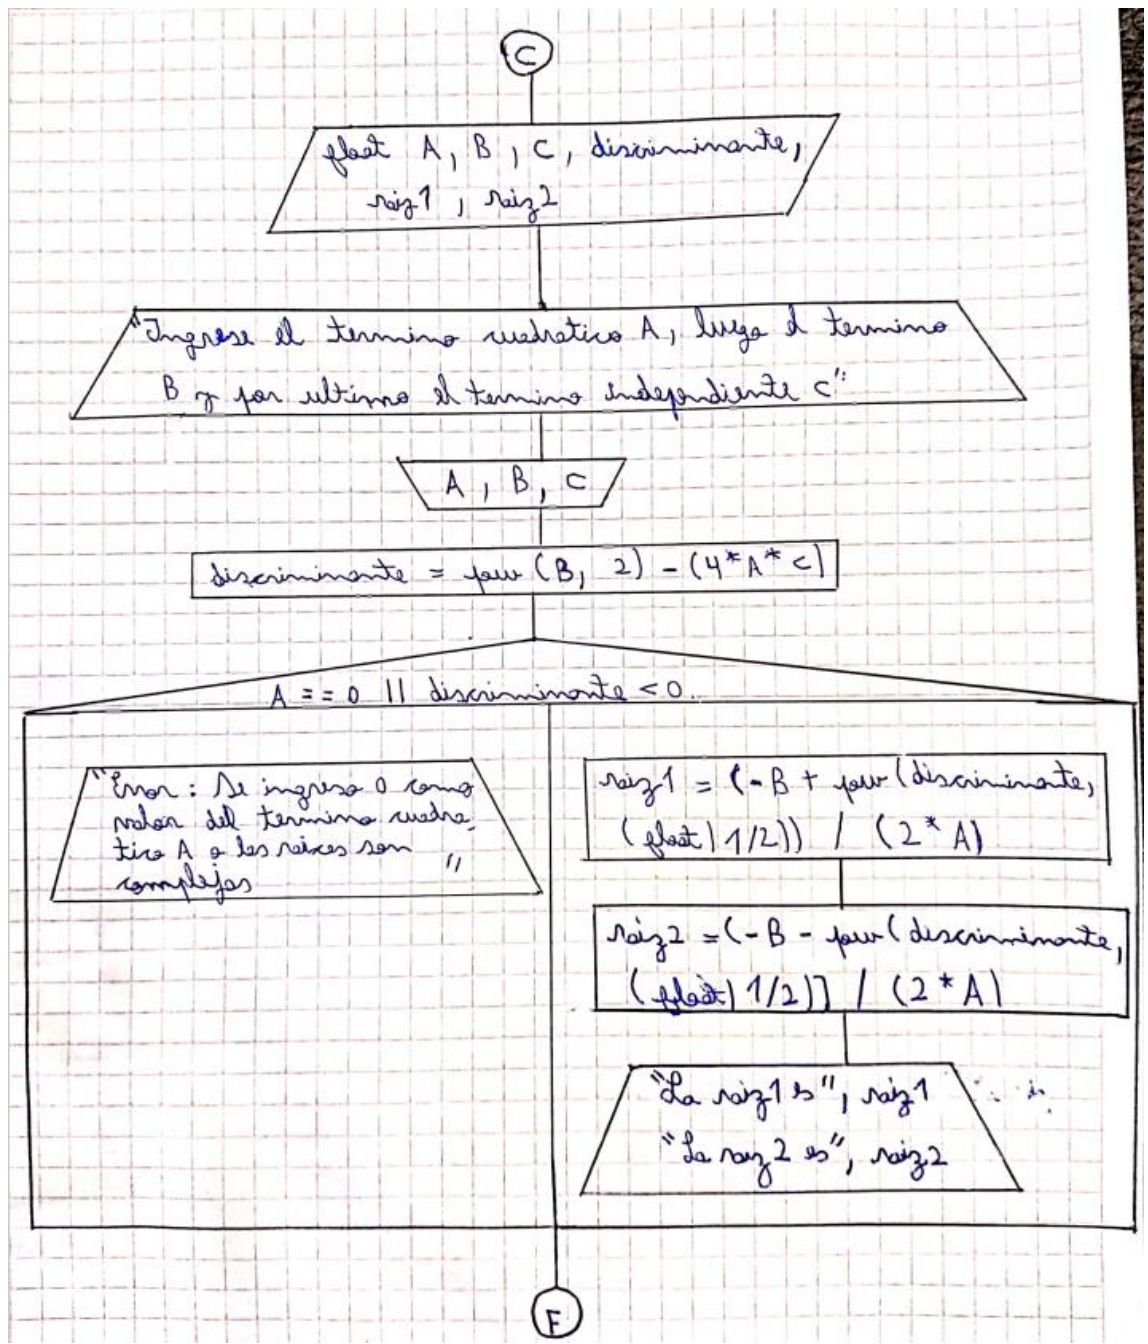 C
float A, B, C, discriminante,
raiz1, raiz2
"Ingrese el termino cuadratico A, luego el termino
B y por ultimo el termino independiente C"
A, B, C
discriminante = pow (B, 2) - (4*A*C)
A == 0 || discriminante < 0.
"Error: Se ingreso 0 como
valor del termino cuadra-
tico A o las raices son
complejas "
raiz1 = (-B + pow (discriminante,
(float) 1/2)) / (2 * A)
raiz2 = (-B - pow (discriminante,
(float) 1/2)) / (2 * A)
"La raiz1 es", raiz1
"La raiz 2 es", raiz2
F